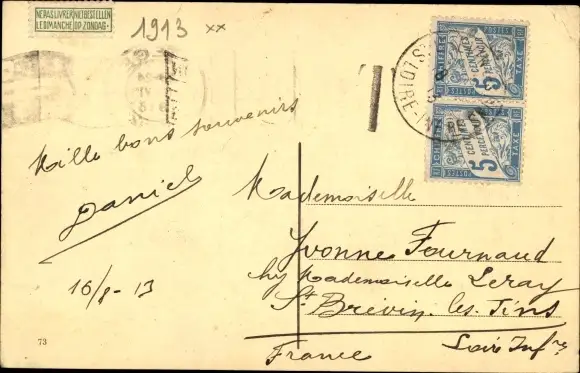 NE PAS LIVRER NIET BESTELLEN
LE DIMANCHE OP ZONDAG
1913 xx
Mille bons souvenirs
Daniel
16/8-13
T
Mademoiselle
Yvonne Fournaud
Mademoiselle Leray
St Brévin les Pins
Loire Infre
France
73
CENTIMES
A PERCEVOIR
5
CHIFFRE
TAXE
POSTES
CENTIMES
A PERCEVOIR
5
TAXE
POSTES
LOIRE-INF